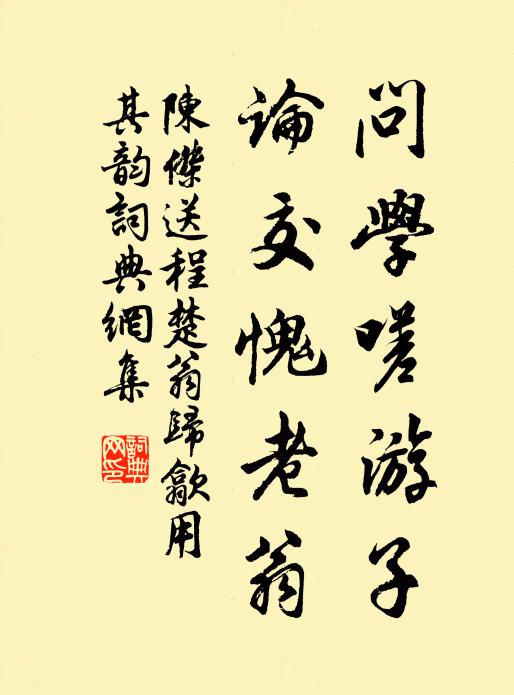 問學嗟游子
論交愧老翁
陳傑送程楚翁歸歙用
其韵詞典網集
詞典
网印